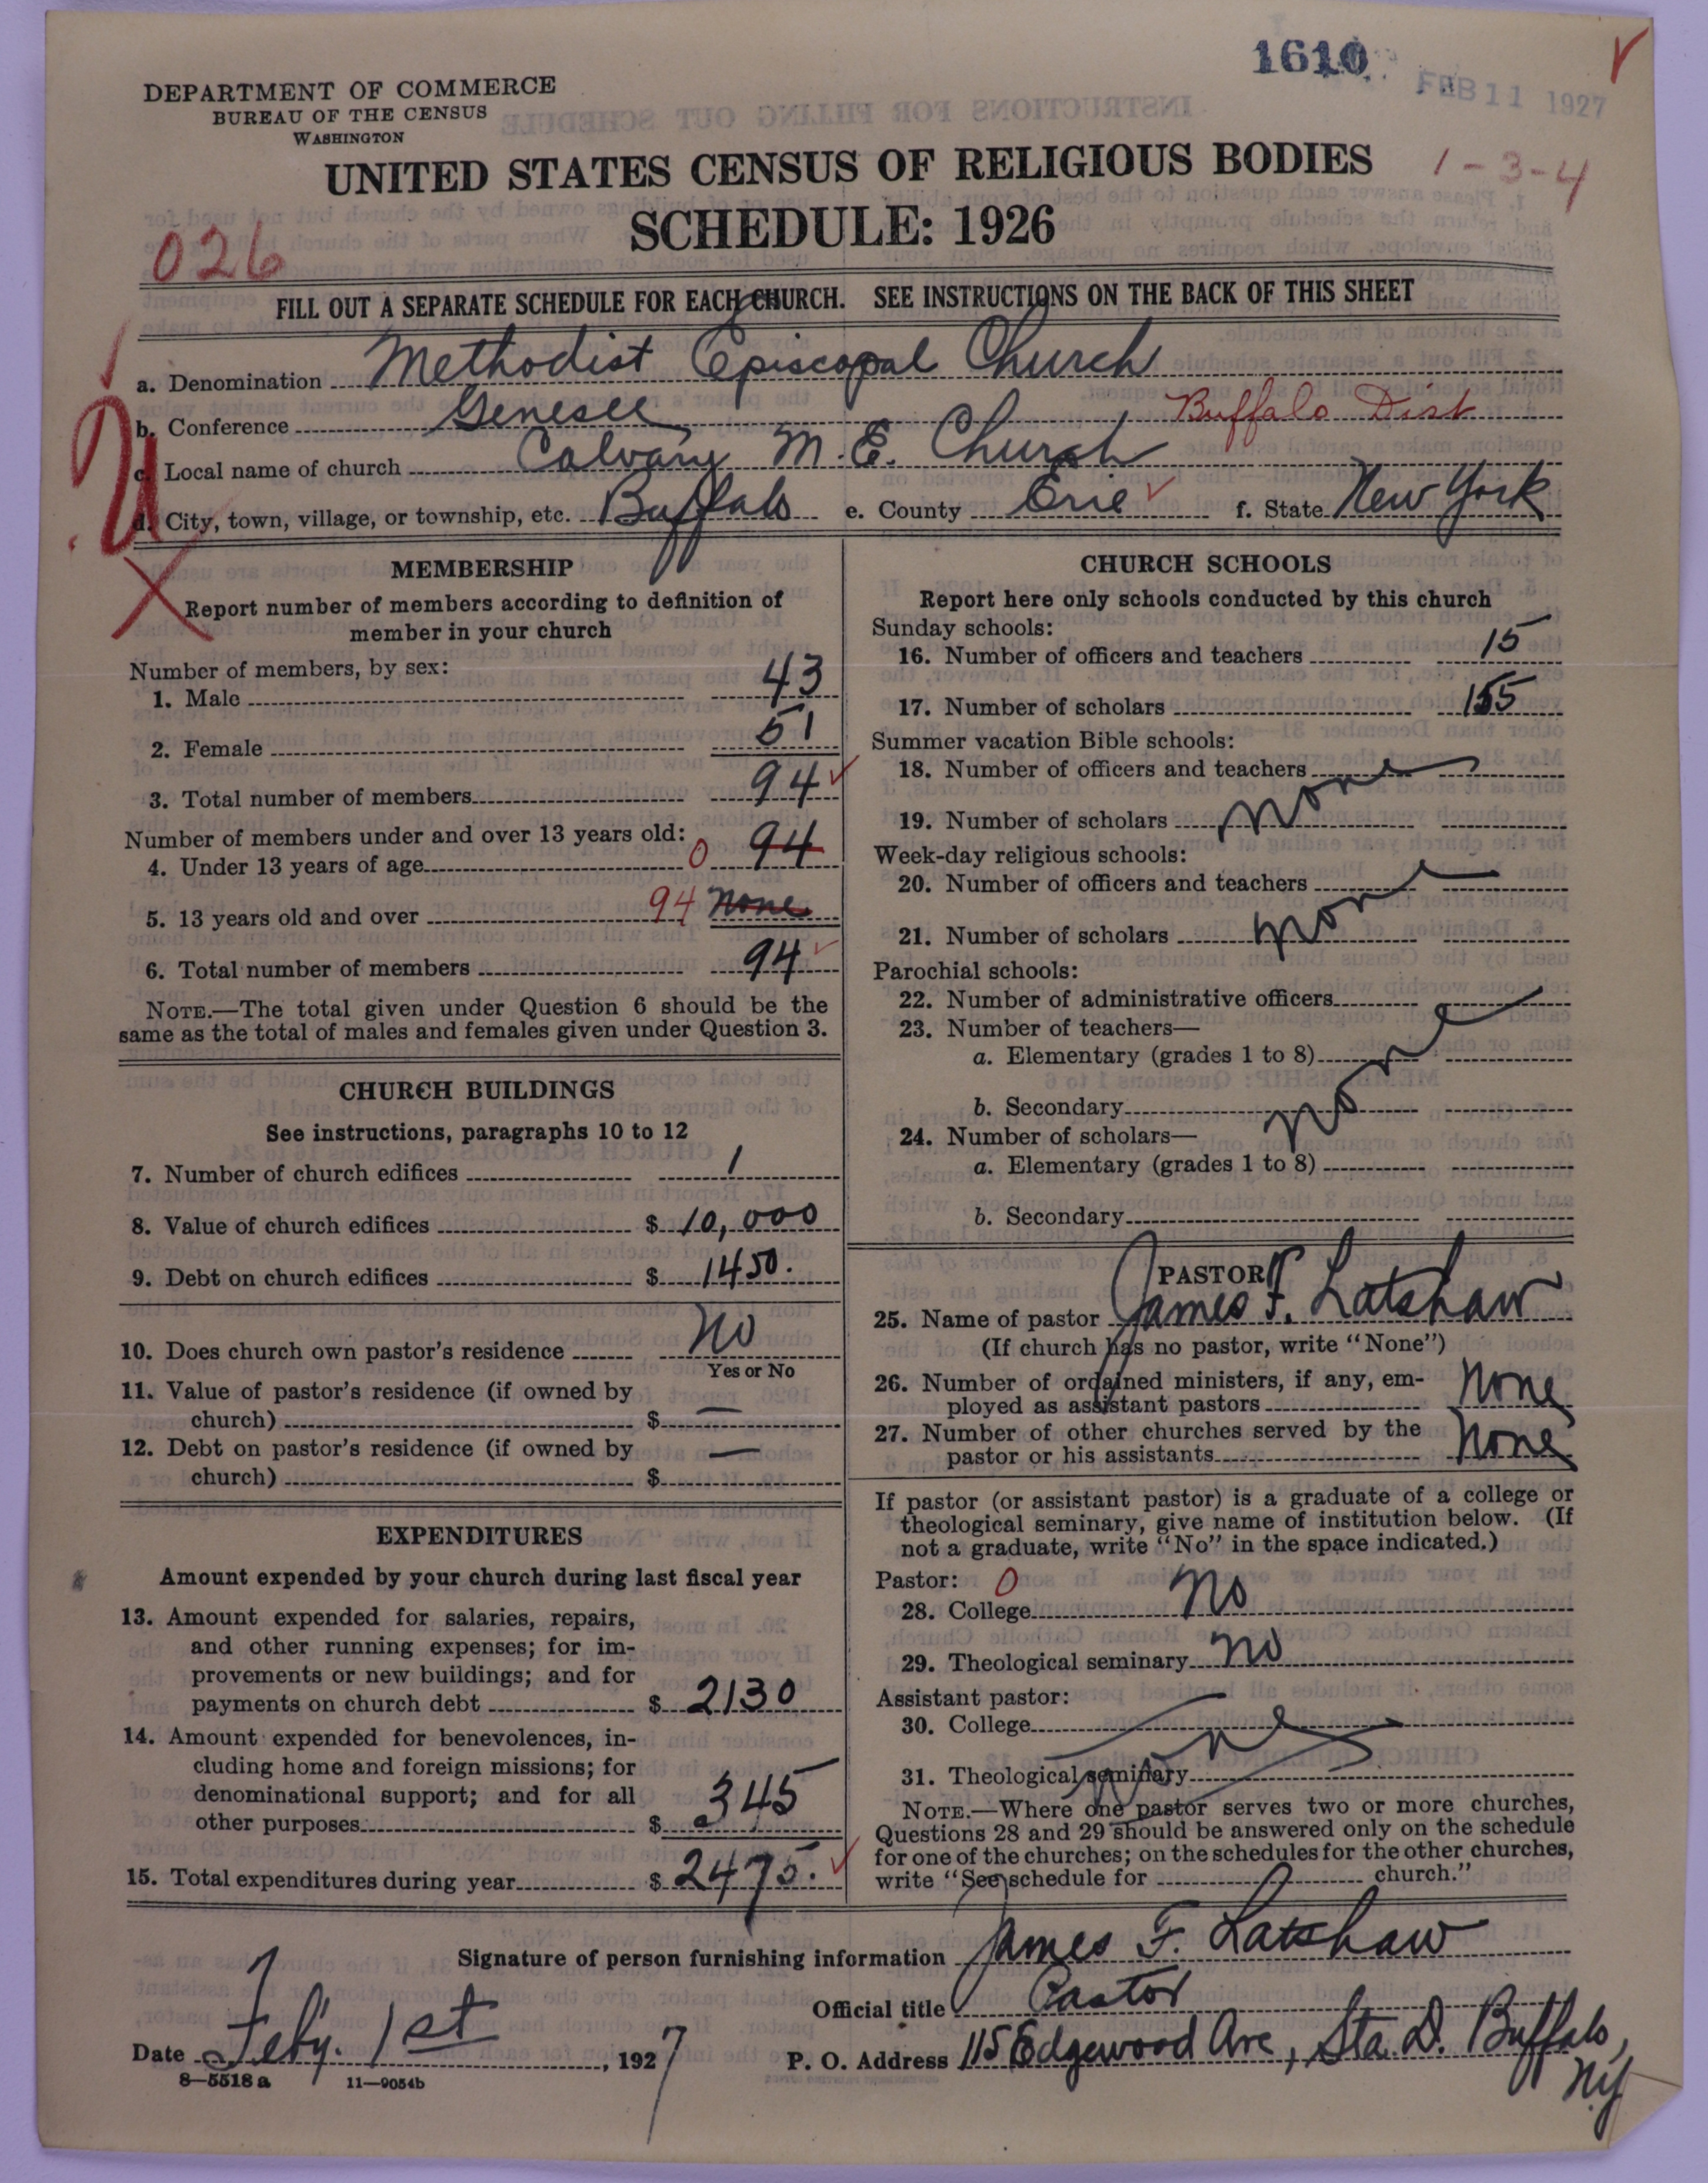 1610
FEB 11 1927
DEPARTMENT OF COMMERCE
BUREAU OF THE CENSUS
WASHINGTON
UNITED STATES CENSUS OF RELIGIOUS BODIES
1-3-4
SCHEDULE: 1926
026
FILL OUT A SEPARATE SCHEDULE FOR EACH CHURCH. SEE INSTRUCTIONS ON THE BACK OF THIS SHEET
a. Denomination Methodist Episcopal Church
b. Conference Genesee Buffalo Dist
c. Local name of church Calvary M.E. Church
d. City, town, village, or township, etc. Buffalo e. County Erie f. State New York
MEMBERSHIP
Report number of members according to definition of
member in your church
Number of members, by sex:
1. Male 43
2. Female 51
3. Total number of members 94
Number of members under and over 13 years old:
4. Under 13 years of age 0 94
5. 13 years old and over 94 None
6. Total number of members 94
NOTE.—The total given under Question 6 should be the
same as the total of males and females given under Question 3.
CHURCH BUILDINGS
See instructions, paragraphs 10 to 12
7. Number of church edifices 1
8. Value of church edifices $ 10,000
9. Debt on church edifices $ 1450.
10. Does church own pastor's residence No
Yes or No
11. Value of pastor's residence (if owned by
church) $ —
12. Debt on pastor's residence (if owned by
church) $ —
EXPENDITURES
Amount expended by your church during last fiscal year
13. Amount expended for salaries, repairs,
and other running expenses; for im-
provements or new buildings; and for
payments on church debt $ 2130
14. Amount expended for benevolences, in-
cluding home and foreign missions; for
denominational support; and for all
other purposes $ 345
15. Total expenditures during year $ 2475.
CHURCH SCHOOLS
Report here only schools conducted by this church
Sunday schools:
16. Number of officers and teachers 15
17. Number of scholars 155
Summer vacation Bible schools:
18. Number of officers and teachers
19. Number of scholars None
Week-day religious schools:
20. Number of officers and teachers
21. Number of scholars None
Parochial schools:
22. Number of administrative officers
23. Number of teachers—
a. Elementary (grades 1 to 8)
b. Secondary None
24. Number of scholars—
a. Elementary (grades 1 to 8)
b. Secondary
PASTOR
25. Name of pastor James F. Latshaw
(If church has no pastor, write "None")
26. Number of ordained ministers, if any, em-
ployed as assistant pastors None
27. Number of other churches served by the
pastor or his assistants None
If pastor (or assistant pastor) is a graduate of a college or
theological seminary, give name of institution below. (If
not a graduate, write "No" in the space indicated.)
Pastor: 0
28. College No
29. Theological seminary No
Assistant pastor:
30. College
31. Theological seminary None
NOTE.—Where one pastor serves two or more churches,
Questions 28 and 29 should be answered only on the schedule
for one of the churches; on the schedules for the other churches,
write "See schedule for church."
Signature of person furnishing information James F. Latshaw
Official title Pastor
Date Feby. 1st, 1927 P. O. Address 115 Edgewood Ave, Sta. D. Buffalo,
N.Y.
8—5518a 11—9054b